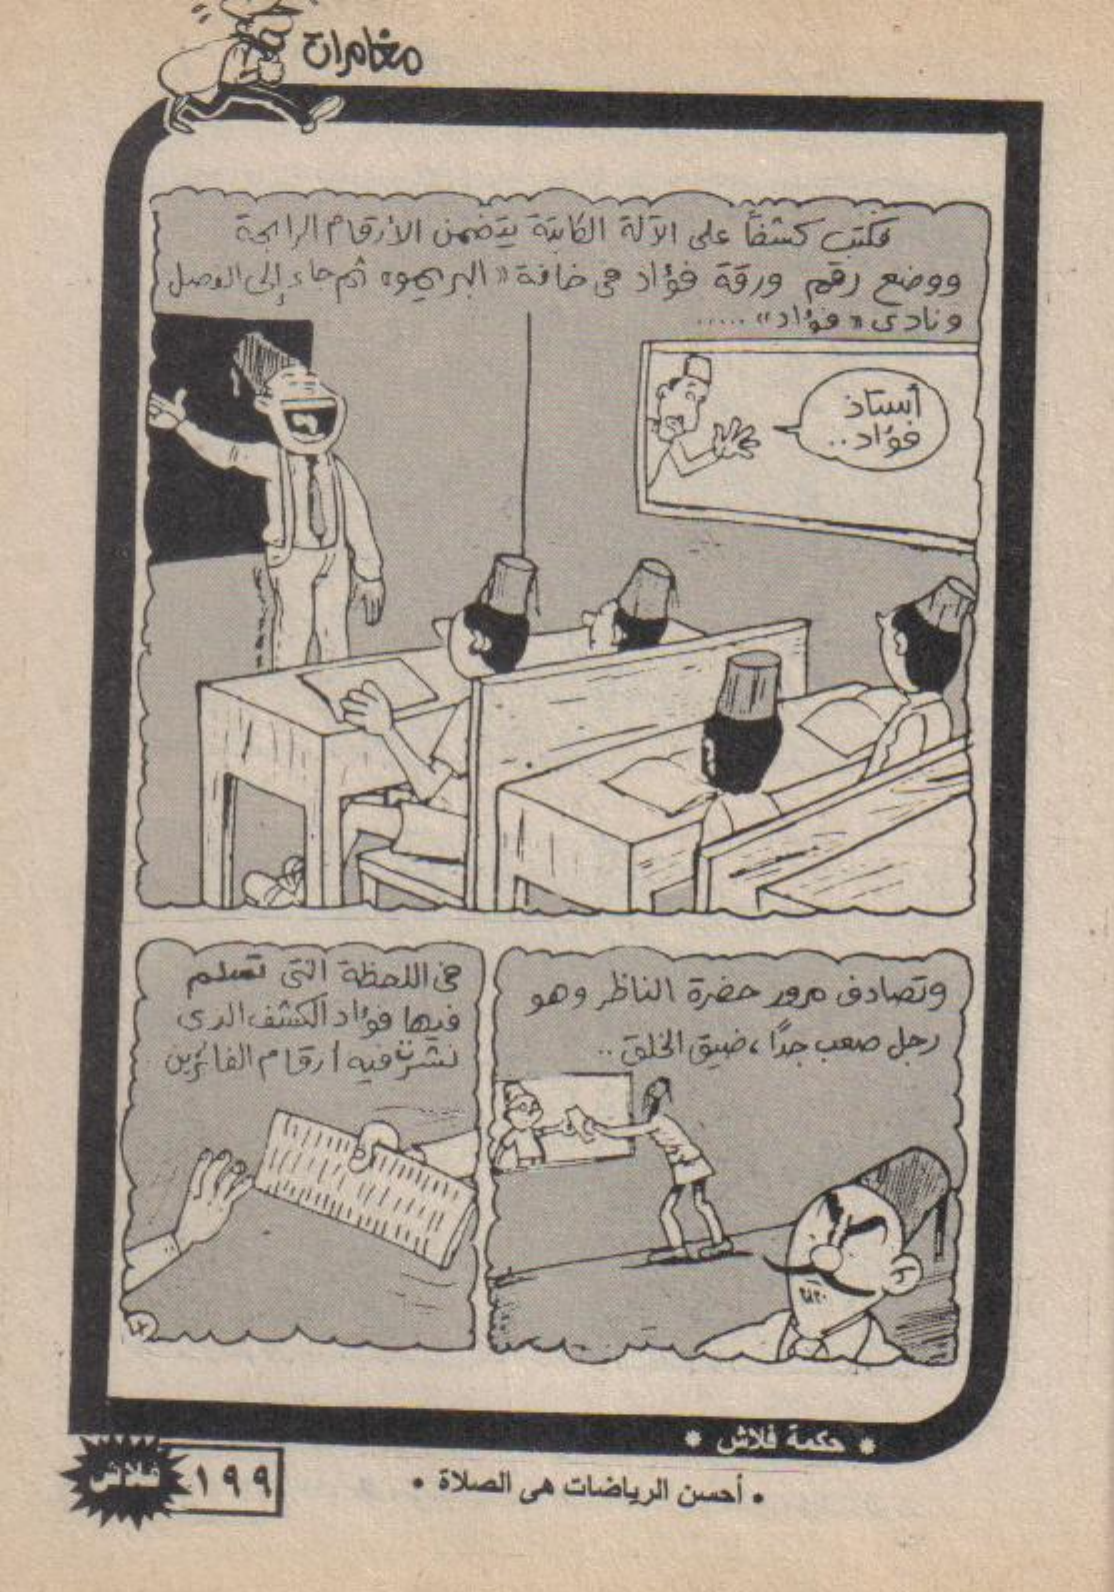 مغامرات
فكتب كشفاً على الآلة الكاتبة يتضمن الأرقام الرابحة
ووضع رقم ورقة فؤاد فى خانة «البريمو» ثم جاء إلى الفصل
ونادى «فؤاد» .....
أستاذ
فؤاد..
وتصادف مرور حضرة الناظر وهو
رجل صعب جدًا، ضيق الخلق..
فى اللحظة التى تسلم
فيها فؤاد الكشف الذى
نشرت فيه أرقام الفائزين
* حكمة فلاش *
• أحسن الرياضات هى الصلاة •
١٩٩
فلاش